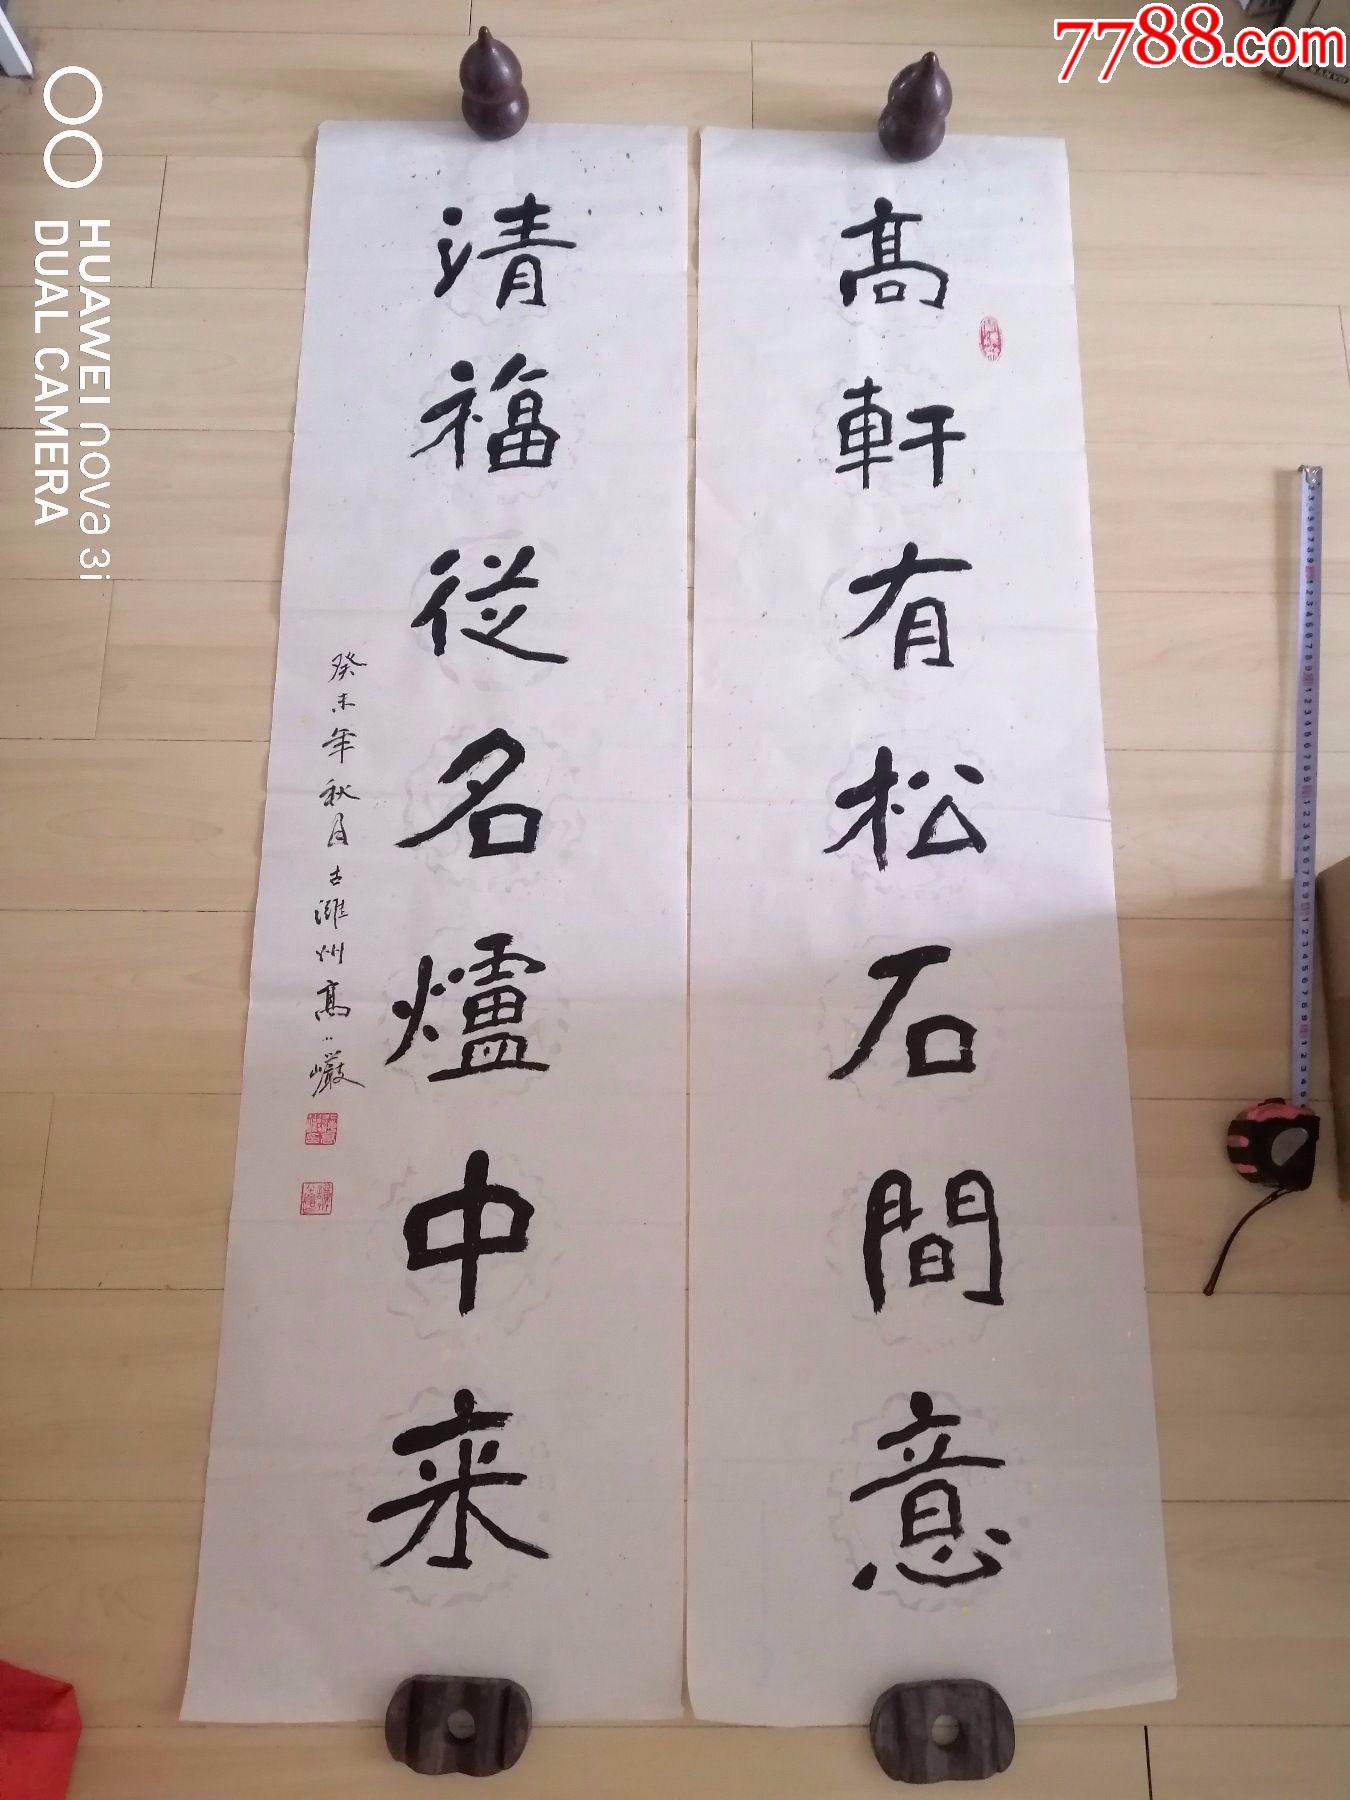 7788.com
HUAWEI nova 3i
DUAL CAMERA
高軒有松石間意
清福從名爐中来
癸未年秋月古濰州高小巖